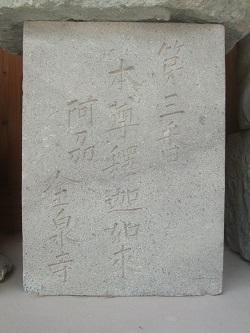 第三番
本尊釋迦如来
阿刕 金泉寺